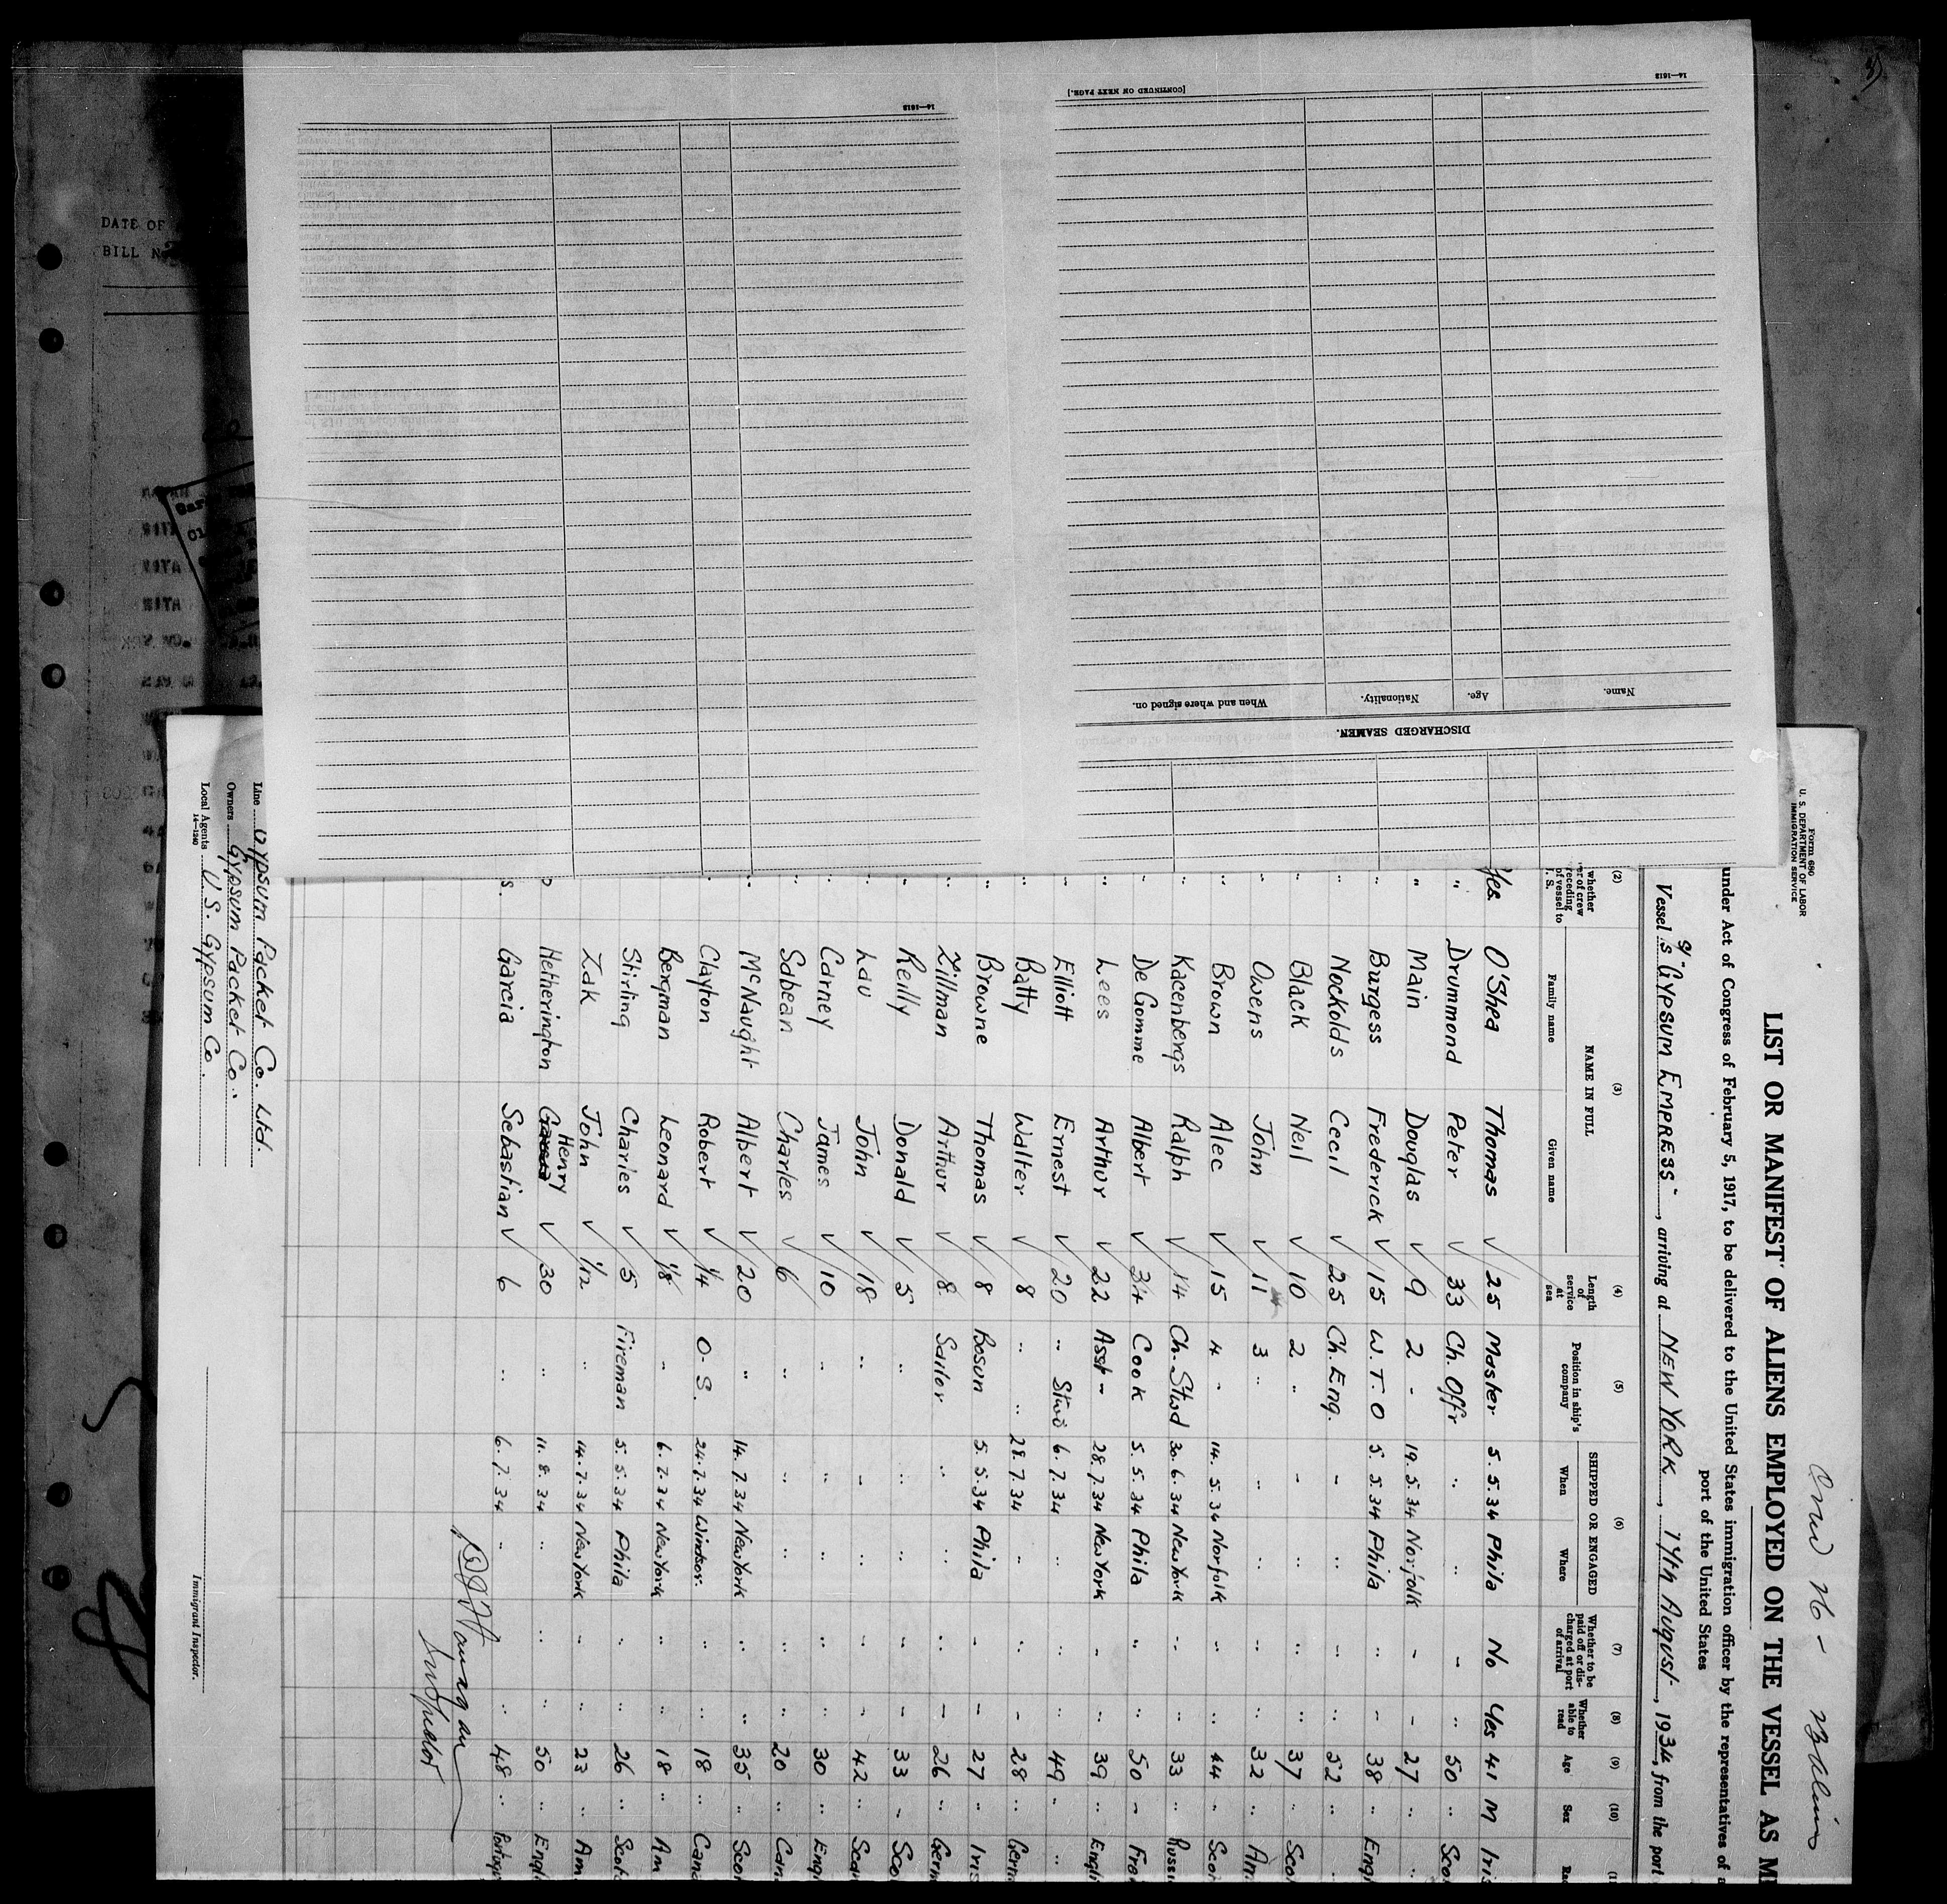 [CONTINUED ON NEXT PAGE.]
14—1613
14—1613
DISCHARGED SEAMEN.
Name.
Age.
Nationality.
When and where signed on.
DATE OF
BILL N
Form 680
U. S. DEPARTMENT OF LABOR
IMMIGRATION SERVICE
LIST OR MANIFEST OF ALIENS EMPLOYED ON THE VESSEL AS M
under Act of Congress of February 5, 1917, to be delivered to the United States immigration officer by the representatives of a
port of the United States
Vessel S/S "Gypsum Empress", arriving at NEW YORK, 17th August, 1934, from the port
(2) (3) (4) (5) (6) (7) (8) (9) (10) (1
whether
er of crew
receding
of vessel to
. S.
NAME IN FULL
Family name
Given name
Length of service at sea
Position in ship's company
SHIPPED OR ENGAGED
When
Where
Whether to be paid off or discharged at port of arrival
Whether able to read
Age
Sex
Rac
Yes. O'Shea Thomas ✓ 25 Master 5.5.34 Phila No Yes 41 M Iris
" Drummond Peter ✓ 33 Ch. Offr " " - " 50 " Sco
" Main Douglas ✓ 9 2 - 19.5.34 Norfolk - - 27 " "
" Burgess Frederick ✓ 15 W.T.O 5.5.34 Phila " - 38 " Engl
" Nockolds Cecil ✓ 25 Ch. Eng. - " - " 52 " "
" Black Neil ✓ 10 2 " - " " " 37 " Scot
" Owens John ✓ 11 3 " " " " " 32 " Am
" Brown Alec ✓ 15 4 - 14.5.34 Norfolk " " 44 - Scot
" Kacenbergs Ralph ✓ 14 Ch. Stwd 30.6.34 New York " " 33 " Russi
" De Gomme Albert ✓ 34 Cook 5.5.34 Phila " " 50 - Fre
" Lees Arthur ✓ 22 Asst - 28.7.34 New York - " 39 " Engli
" Elliott Ernest ✓ 20 " Stwd 6.7.34 " " " 49 " "
" Batty Walter ✓ 8 " " 28.7.34 " " - 28 " Germ
" Browne Thomas ✓ 8 Bosun 5.5.34 Phila - - 27 " Iris
" Zillman Arthur ✓ 8 Sailor " " " - 26 " Germ
" Reilly Donald ✓ 5 " " " " - 33 - Sco
" Lau John ✓ 18 " - " " - 42 " Scan
" Carney James ✓ 10 " " " " " 30 " Engl
" Sabean Charles ✓ 6 " " " " " 20 " Can
" McNaught Albert ✓ 20 " 14.7.34 New York " " 35 " Scot
" Clayton Robert ✓ 1/4 O.S. 24.7.34 Windsor. " " 18 " Cana
" Bergman Leonard ✓ 1/8 " 6.7.34 New York " " 18 " Am
" Stirling Charles ✓ 5 Fireman 5.5.34 Phila " " 26 " Scot
" Zak John ✓ 1/12 " 14.7.34 New York " " 23 " Am
Hetherington Henry ✓ 30 " 11.8.34 " " " 50 " Engl
s. Garcia Sebastian ✓ 6 " 6.7.34 " " " 48 " Portugu
Line Gypsum Packet Co. Ltd.
Owners Gypsum Packet Co.
Local Agents U.S. Gypsum Co.
14—1240
Immigrant Inspector.